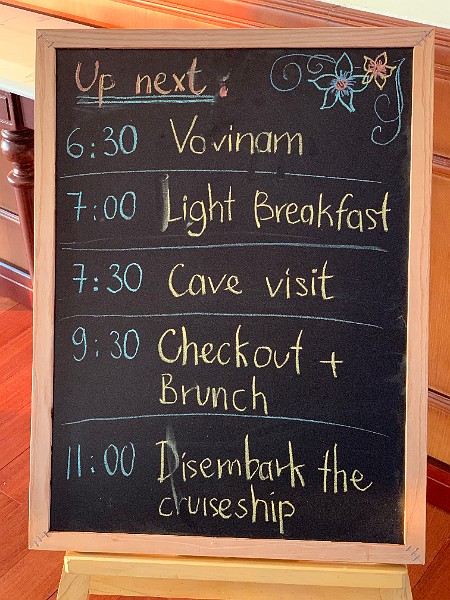 Up next :
6:30 Vovinam
7:00 Light Breakfast
7:30 Cave visit
9:30 Checkout +
Brunch
11:00 Disembark the
cruiseship